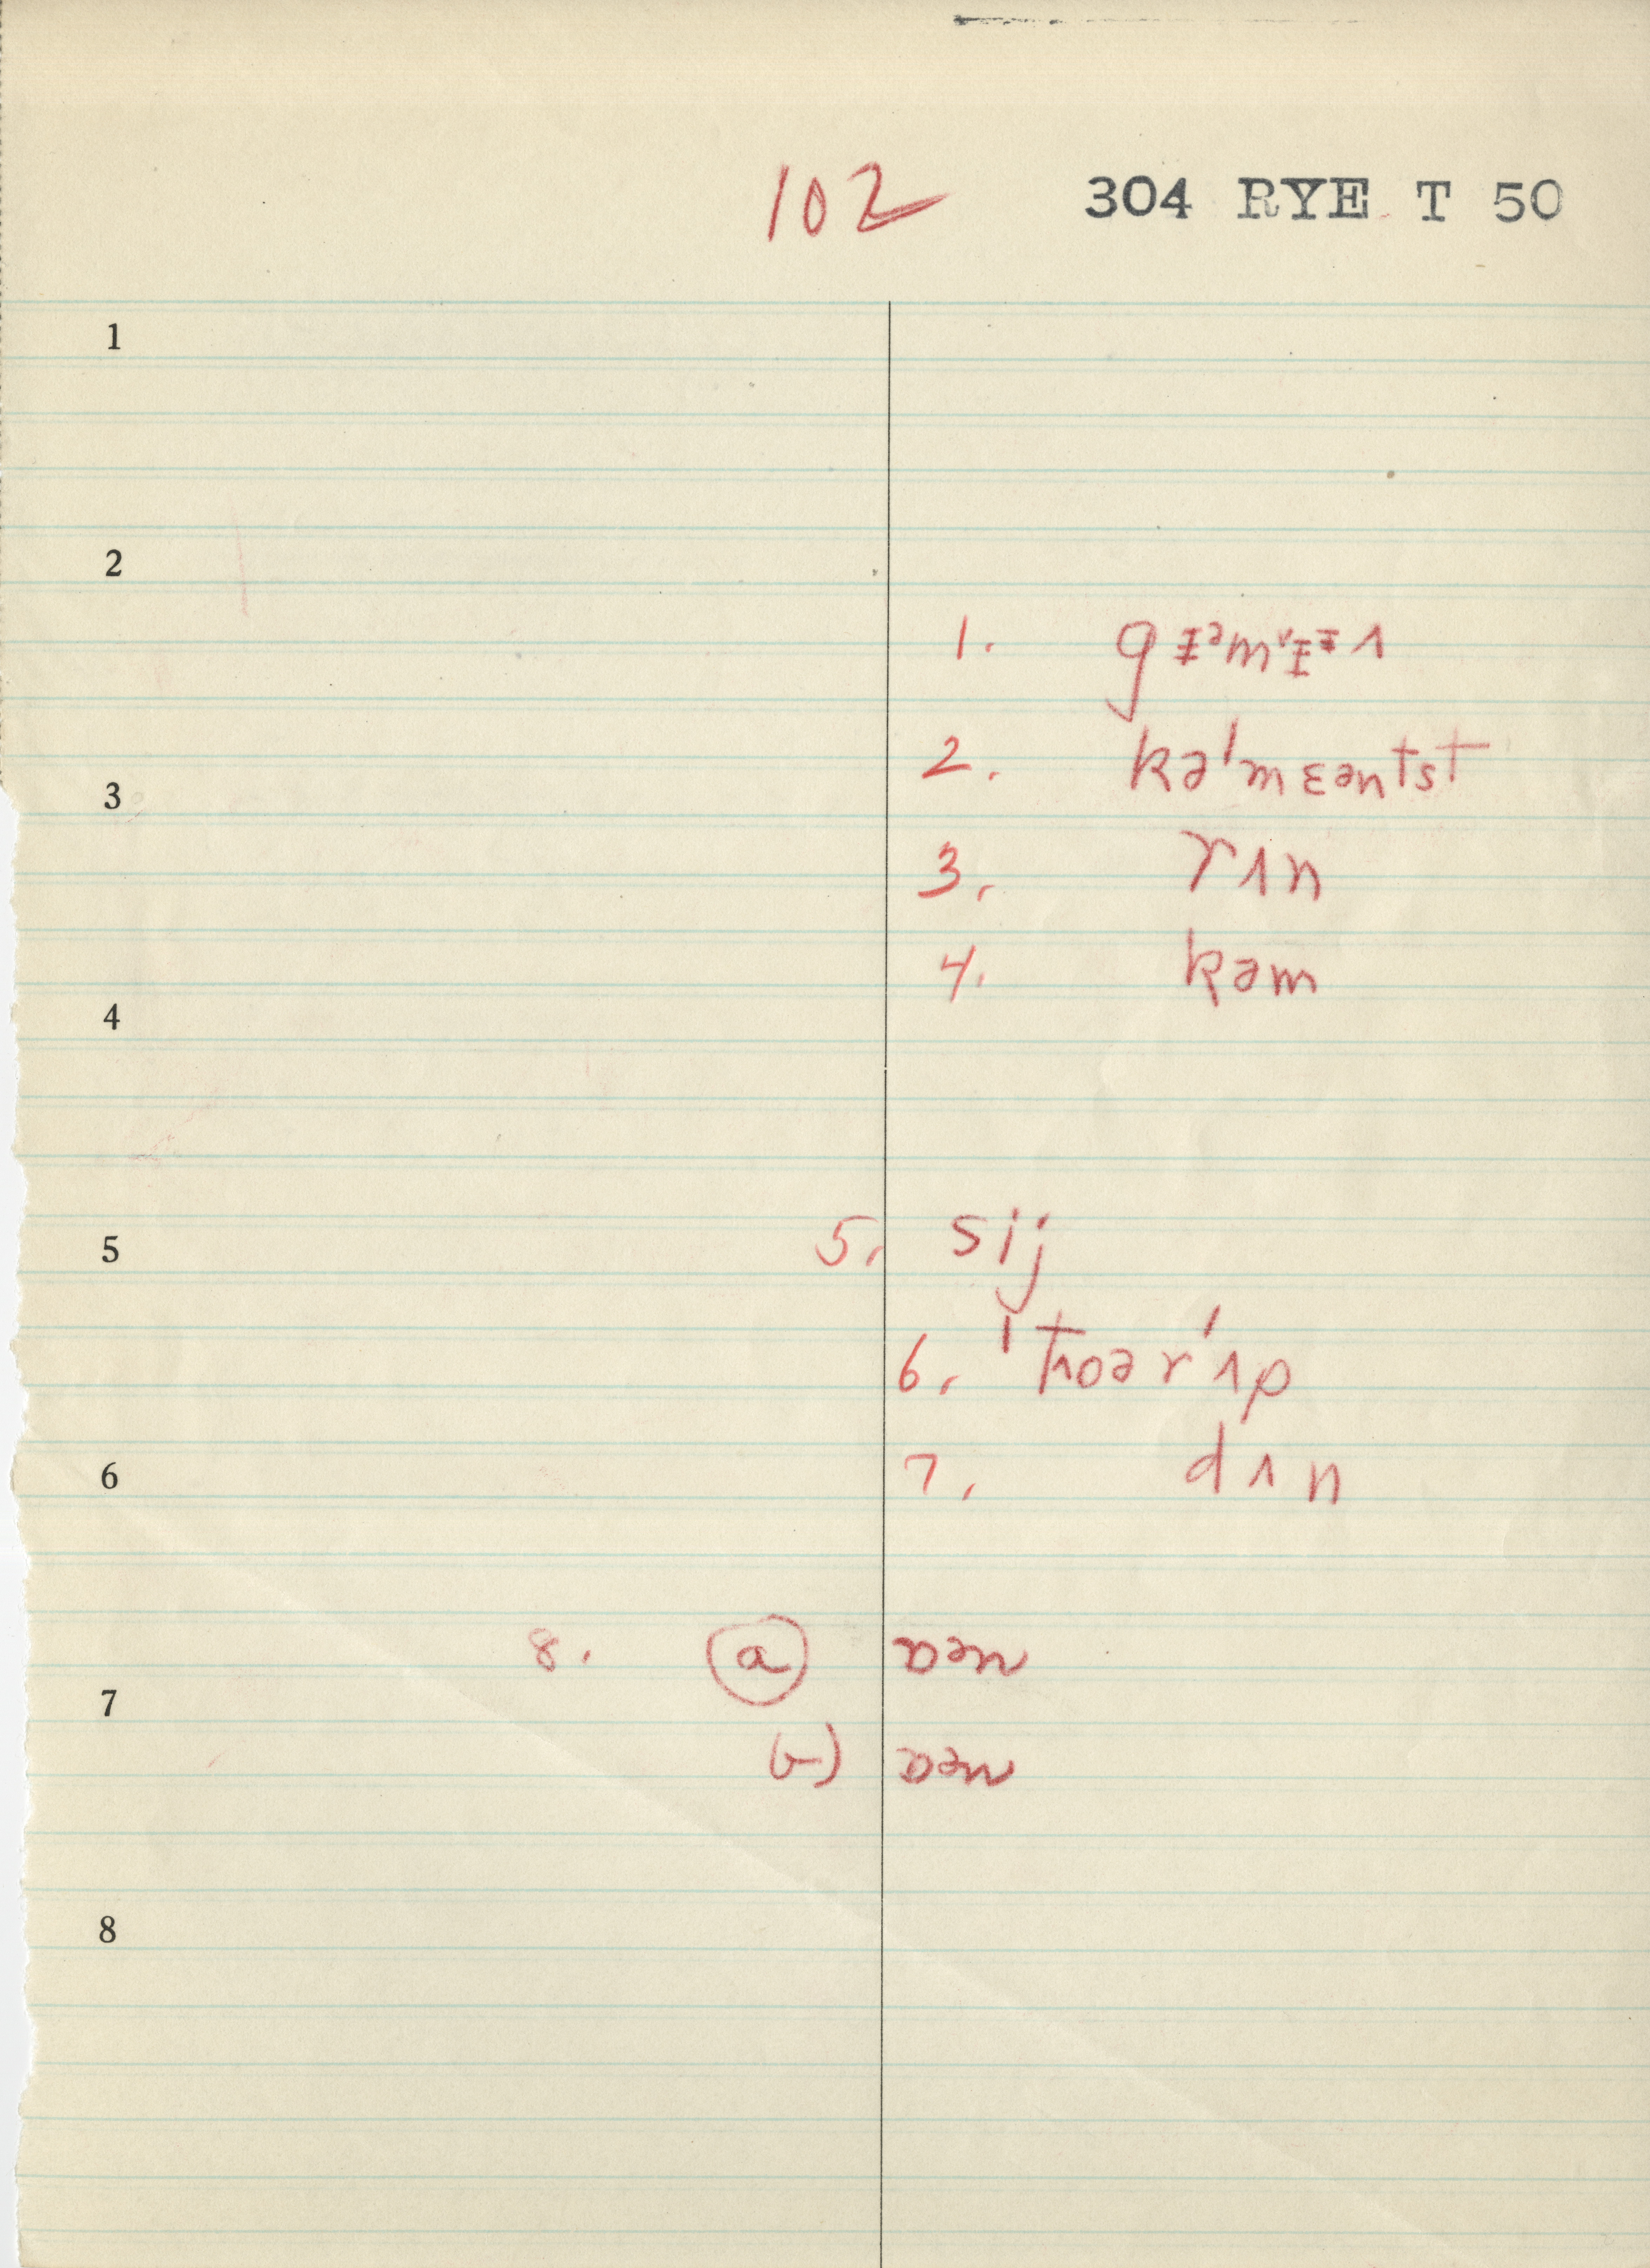 102 304 RYE T 50
1
2
1.
2. kəˈmɛəntst
3
3. rɪn
4. kəm
4
5. sij
5
6. ˈtʰoərˈɪp
6
7. dɪn
8. ⓐ ɒən
7
b) ɒən
8